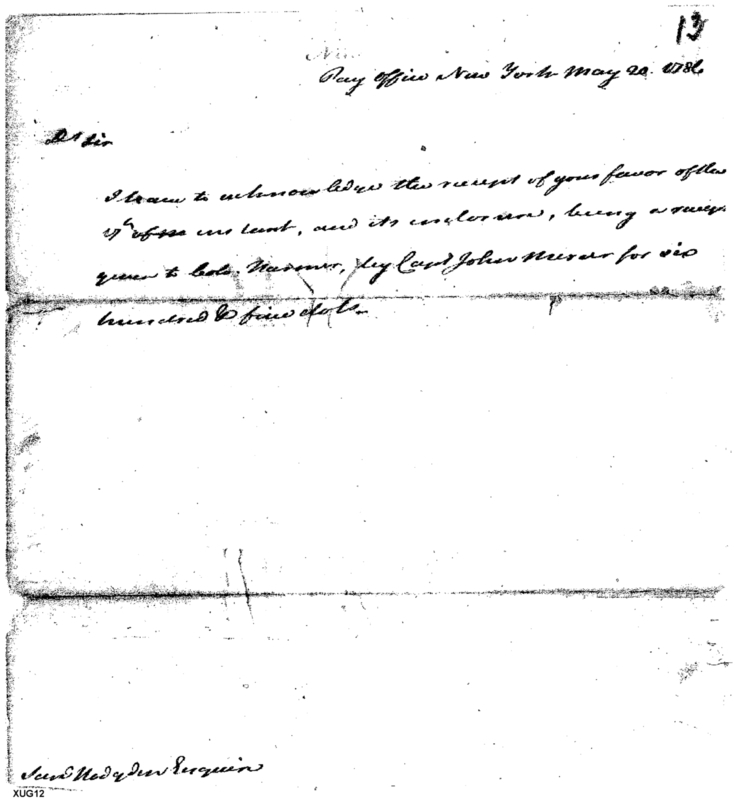 13
Pay office New York May 20. 1786
Dr Sir
I have to acknowledge the receipt of your favor of the
17th of instant, and its inclosure, being a receipt
given to Colo. Harmer, by Capt John Mercer for six
hundred & five dols.
Saml Hodgdon Esquire
XUG12